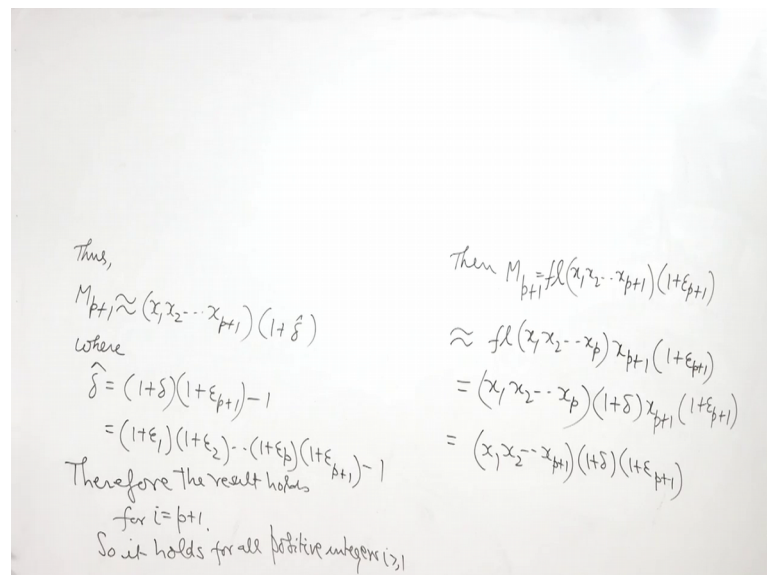 Thus,
M_{p+1} ≈ (x_1x_2---x_{p+1})(1+δ̂)
where
δ̂ = (1+δ)(1+ε_{p+1})-1
= (1+ε_1)(1+ε_2)--(1+ε_p)(1+ε_{p+1})-1
Therefore the result holds
for i=p+1.
So it holds for all positive integers i≥1
Then M_{p+1}=fl(x_1x_2--x_{p+1})(1+ε_{p+1})
≈ fl(x_1x_2--x_p)x_{p+1}(1+ε_{p+1})
= (x_1x_2--x_p)(1+δ)x_{p+1}(1+ε_{p+1})
= (x_1x_2--x_{p+1})(1+δ)(1+ε_{p+1})